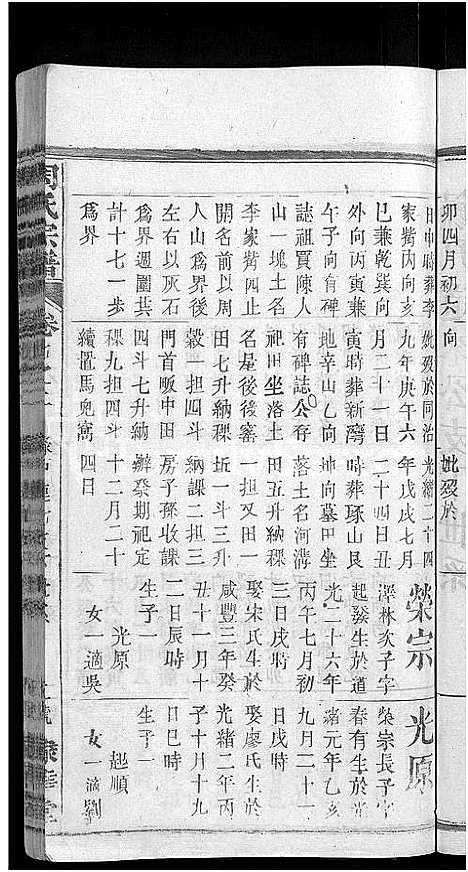 卯四月初六向
妣歿於
日申時葬李
家嘴丙向亥
巳兼乾巽向
外向丙寅兼
午子向有碑
誌祖買陳人
山一塊土名
李家嘴四止
開名前以周
人山爲界後
左右以灰石
爲界週圍共
計十七一步
爲界
妣歿於同治
九年庚午六
月二十一日
寅時葬新灣
地辛山乙向
有碑誌公存
祀田坐落土
名屋後後窰
田七升納稞
穀一担四斗
門首畈中田
四斗七升納
稞九担四斗
續置馬皃窩
光緒二十四
年戊戌七月
二十四日丑
時葬琢山艮
坤向墓田坐
落土名河溝
田五升納稞
一担又田一
坵一斗三升
納課二担三
房子孫收課
辦祭期祀定
十二月二十
四日
榮宗
澤林次子字
起發生於道
光二十六年
丙午七月初
三日戌時
娶宋氏生於
咸豐三年癸
丑十一月十
二日辰時
生子一
光原
女一適吳
光原
榮宗長子字
春有生於光
緒元年乙亥
九月二十一
日戌時
娶廖氏生於
光緒二年丙
子十月十九
日巳時
生子一
起順
女一適劉
周氏宗譜
卷